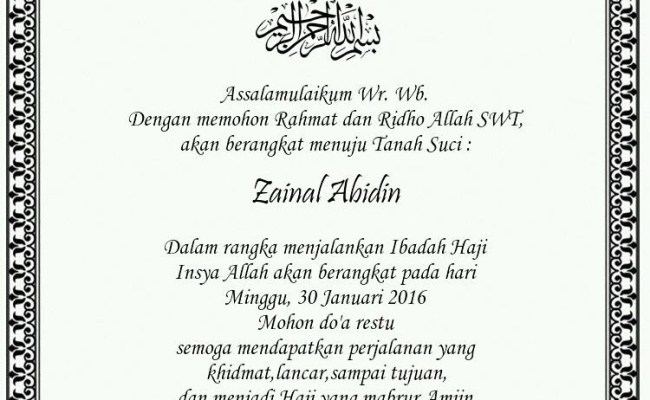 بسم الله الرحمن الرحيم
Assalamulaikum Wr. Wb.
Dengan memohon Rahmat dan Ridho Allah SWT,
akan berangkat menuju Tanah Suci :
Zainal Abidin
Dalam rangka menjalankan Ibadah Haji
Insya Allah akan berangkat pada hari
Minggu, 30 Januari 2016
Mohon do'a restu
semoga mendapatkan perjalanan yang
khidmat,lancar,sampai tujuan,
dan menjadi Haji yang mabrur. Amiin